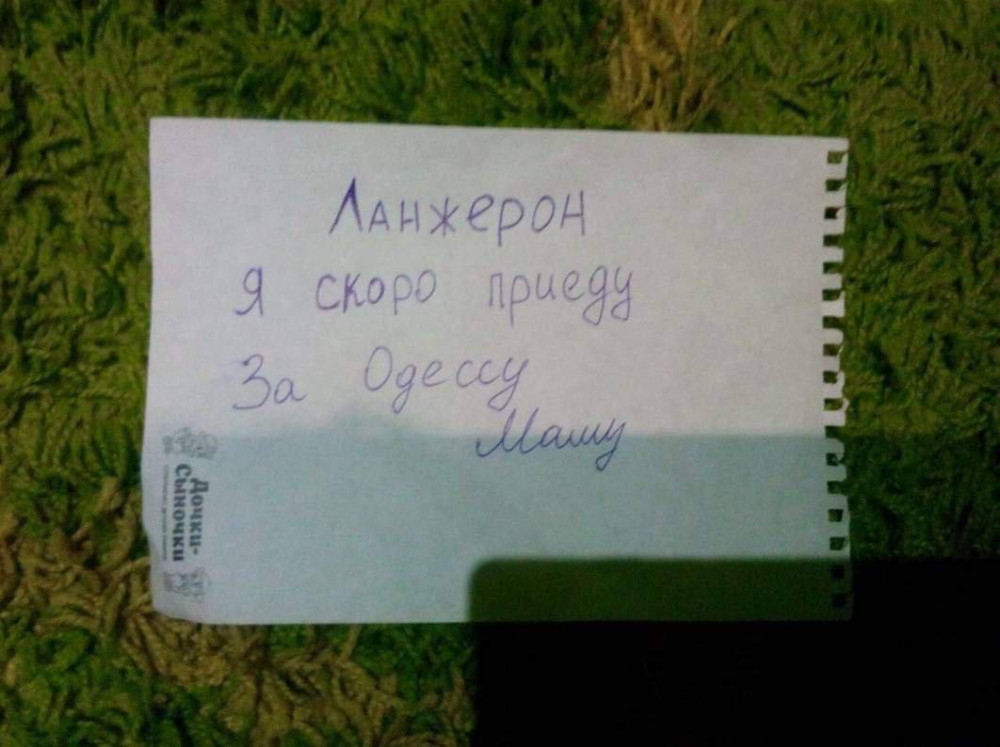 Ланжерон
Я скоро приеду
За Одессу
Маму
Дочки-
Сыночки